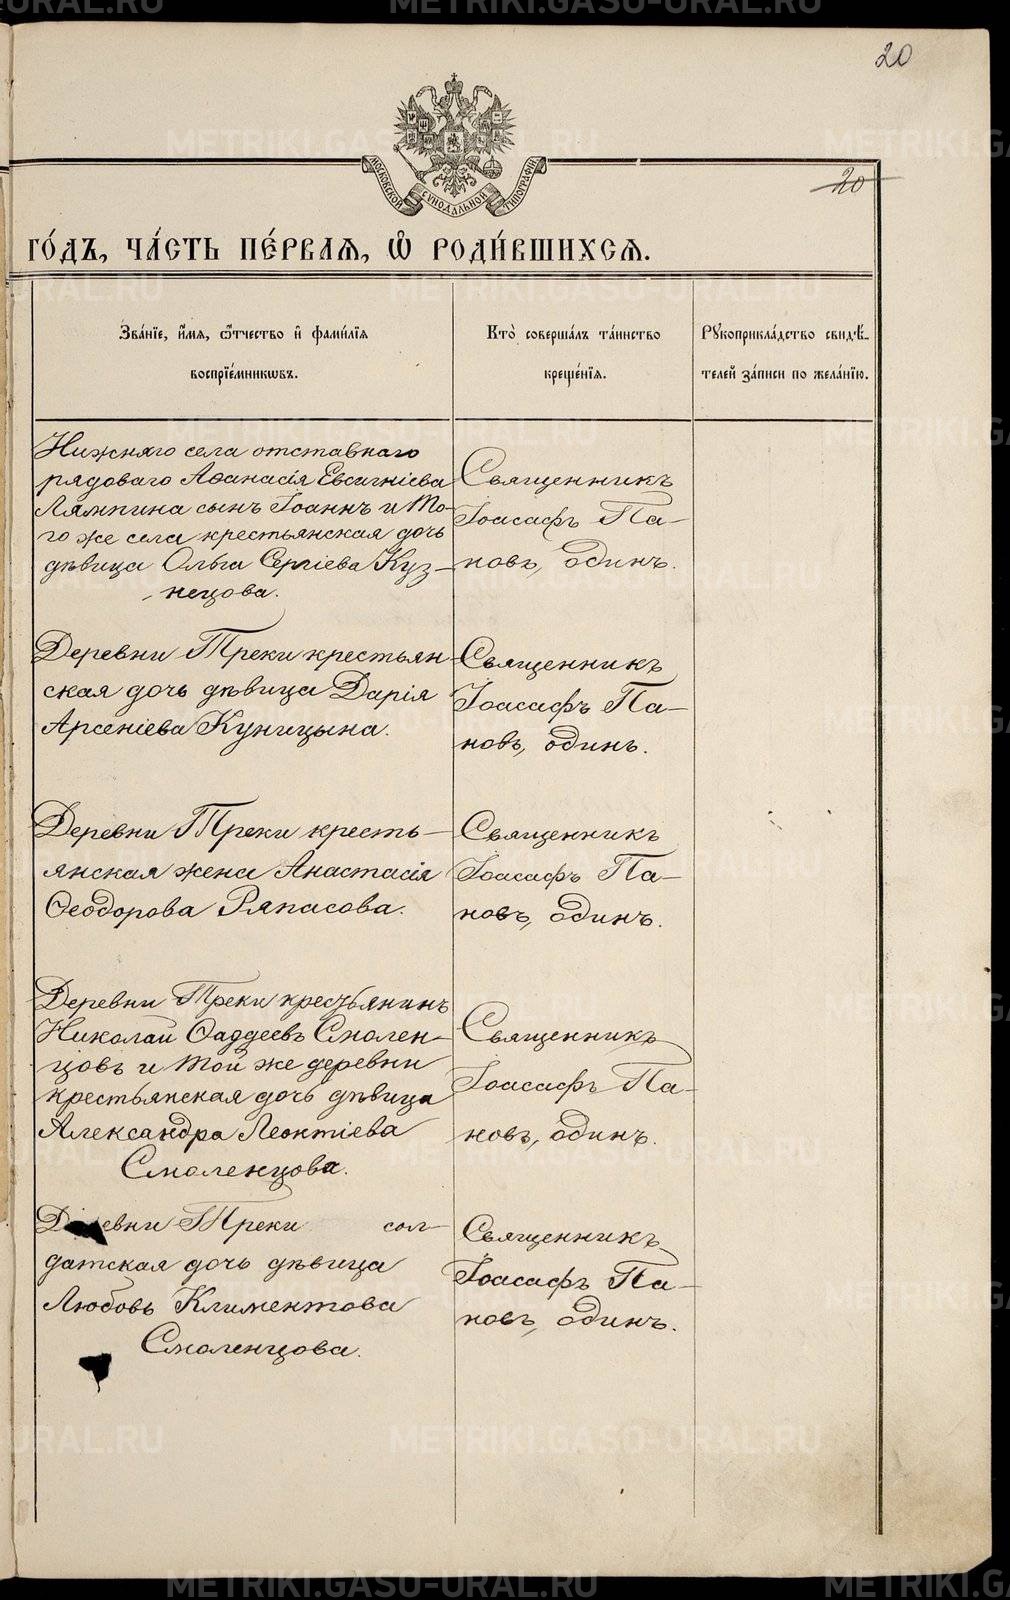 20
МОСКОВСКОЙ СѴНОДАЛЬНОЙ ТИПОГРАФІИ
20
ГО́ДЪ, ЧА́СТЬ ПЕ́РВАѦ, Ѽ РОДИ́ВШИХСѦ.
Зва́нїе, и҆́мѧ, ѻ҆́тчество и҆ фами́лїѧ
воспрїе́мникѡвъ.
Кто̀ соверша́лъ та́инство
креще́нїѧ.
Рꙋкоприкла́дство свидѣ́-
телей за́писи по жела́нїю.
Нижняго села отставнаго
рядоваго Аѳанасія Евсигніева
Лямпина сынъ Іоаннъ и то-
го же села крестьянская дочь
дѣвица Ольга Сергіева Куз-
нецова.
Священникъ
Іоасафъ Па-
новъ, одинъ.
Деревни Треки крестьян-
ская дочь дѣвица Дарія
Арсеніева Куницына.
Священникъ
Іоасафъ Па-
новъ, одинъ.
Деревни Треки кресть-
янская жена Анастасія
Ѳеодорова Ряпасова.
Священникъ
Іоасафъ Па-
новъ, одинъ.
Деревни Треки крестьянинъ
Николай Ѳаддеевъ Смолен-
цовъ и той же деревни
крестьянская дочь дѣвица
Александра Леонтіева
Смоленцова.
Священникъ
Іоасафъ Па-
новъ, одинъ.
Деревни Треки сол-
датская дочь дѣвица
Любовь Климентова
Смоленцова.
Священникъ
Іоасафъ Па-
новъ, одинъ.
METRIKI.GASO-URAL.RU